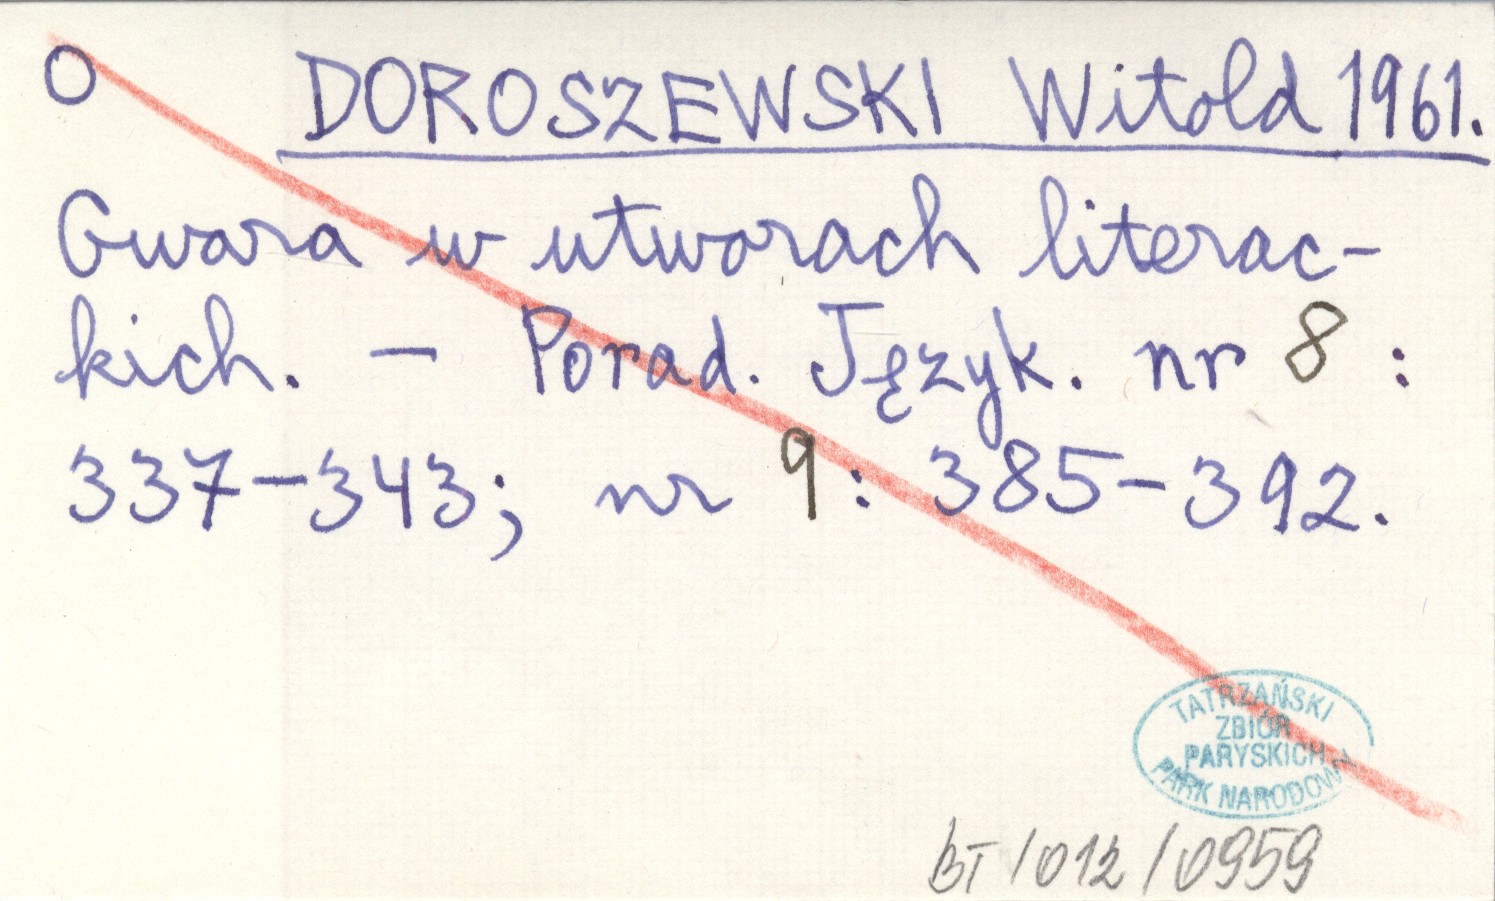 O DOROSZEWSKI Witold 1961.
Gwara w utworach literac-
kich. - Porad. Język. nr 8 :
337-343; nr 9 : 385-392.
TATRZAŃSKI
ZBIÓR
PARYSKICH
PARK NARODOWY
BT/012/0959